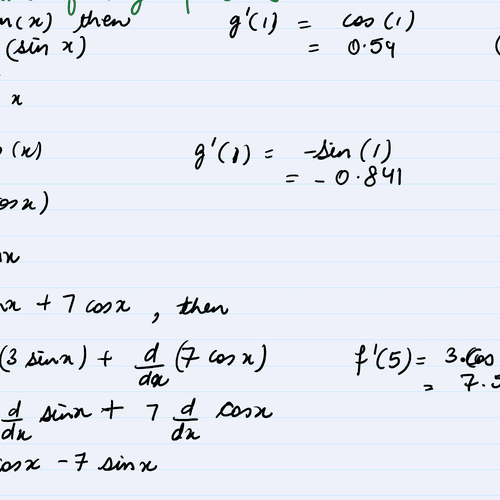 n(x) then g'(1) = cos (1)
(sin x) = 0.54
x
(x) g'(1) = -sin (1)
= - 0.841
osx)
x
x + 7 cosx , then
(3 sinx) + d/dx (7 cosx) f'(5) = 3.cos
= 7.
d/dx sinx + 7 d/dx cosx
cosx - 7 sinx